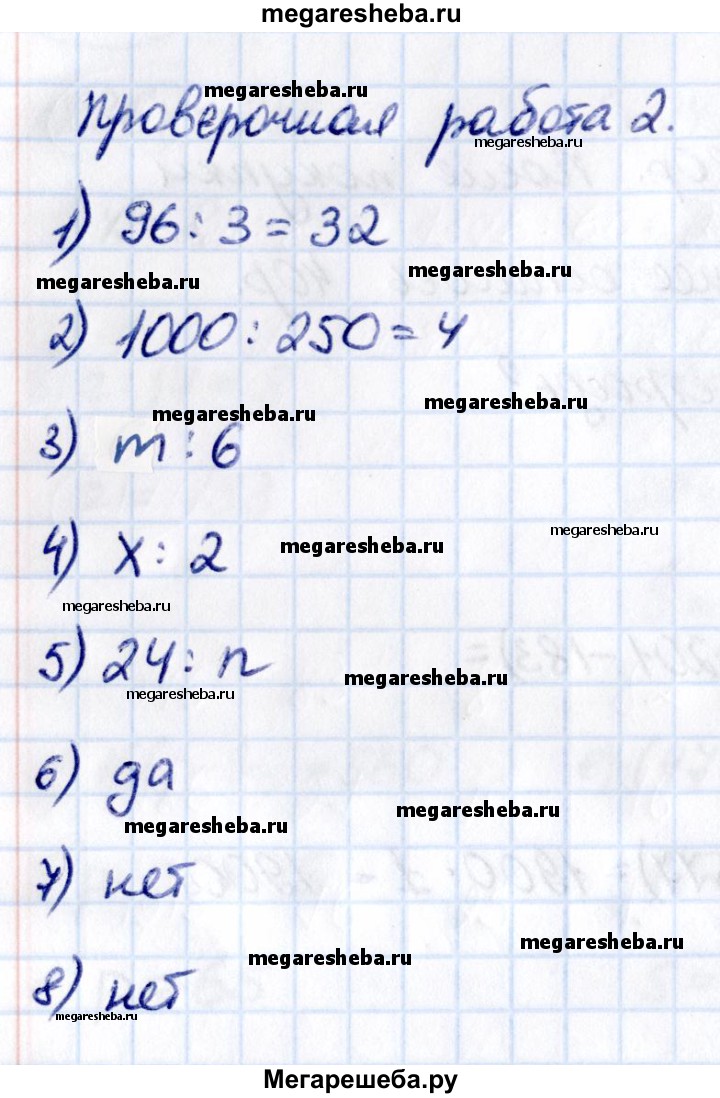 megaresheba.ru
megaresheba.ru
Проверочная работа 2.
megaresheba.ru
1) 96 : 3 = 32
megaresheba.ru
megaresheba.ru
2) 1000 : 250 = 4
megaresheba.ru
megaresheba.ru
3) m : 6
megaresheba.ru
4) x : 2
megaresheba.ru
megaresheba.ru
5) 24 : n
megaresheba.ru
megaresheba.ru
6) да
megaresheba.ru
megaresheba.ru
7) нет
megaresheba.ru
megaresheba.ru
8) нет
megaresheba.ru
Мегарешеба.ру